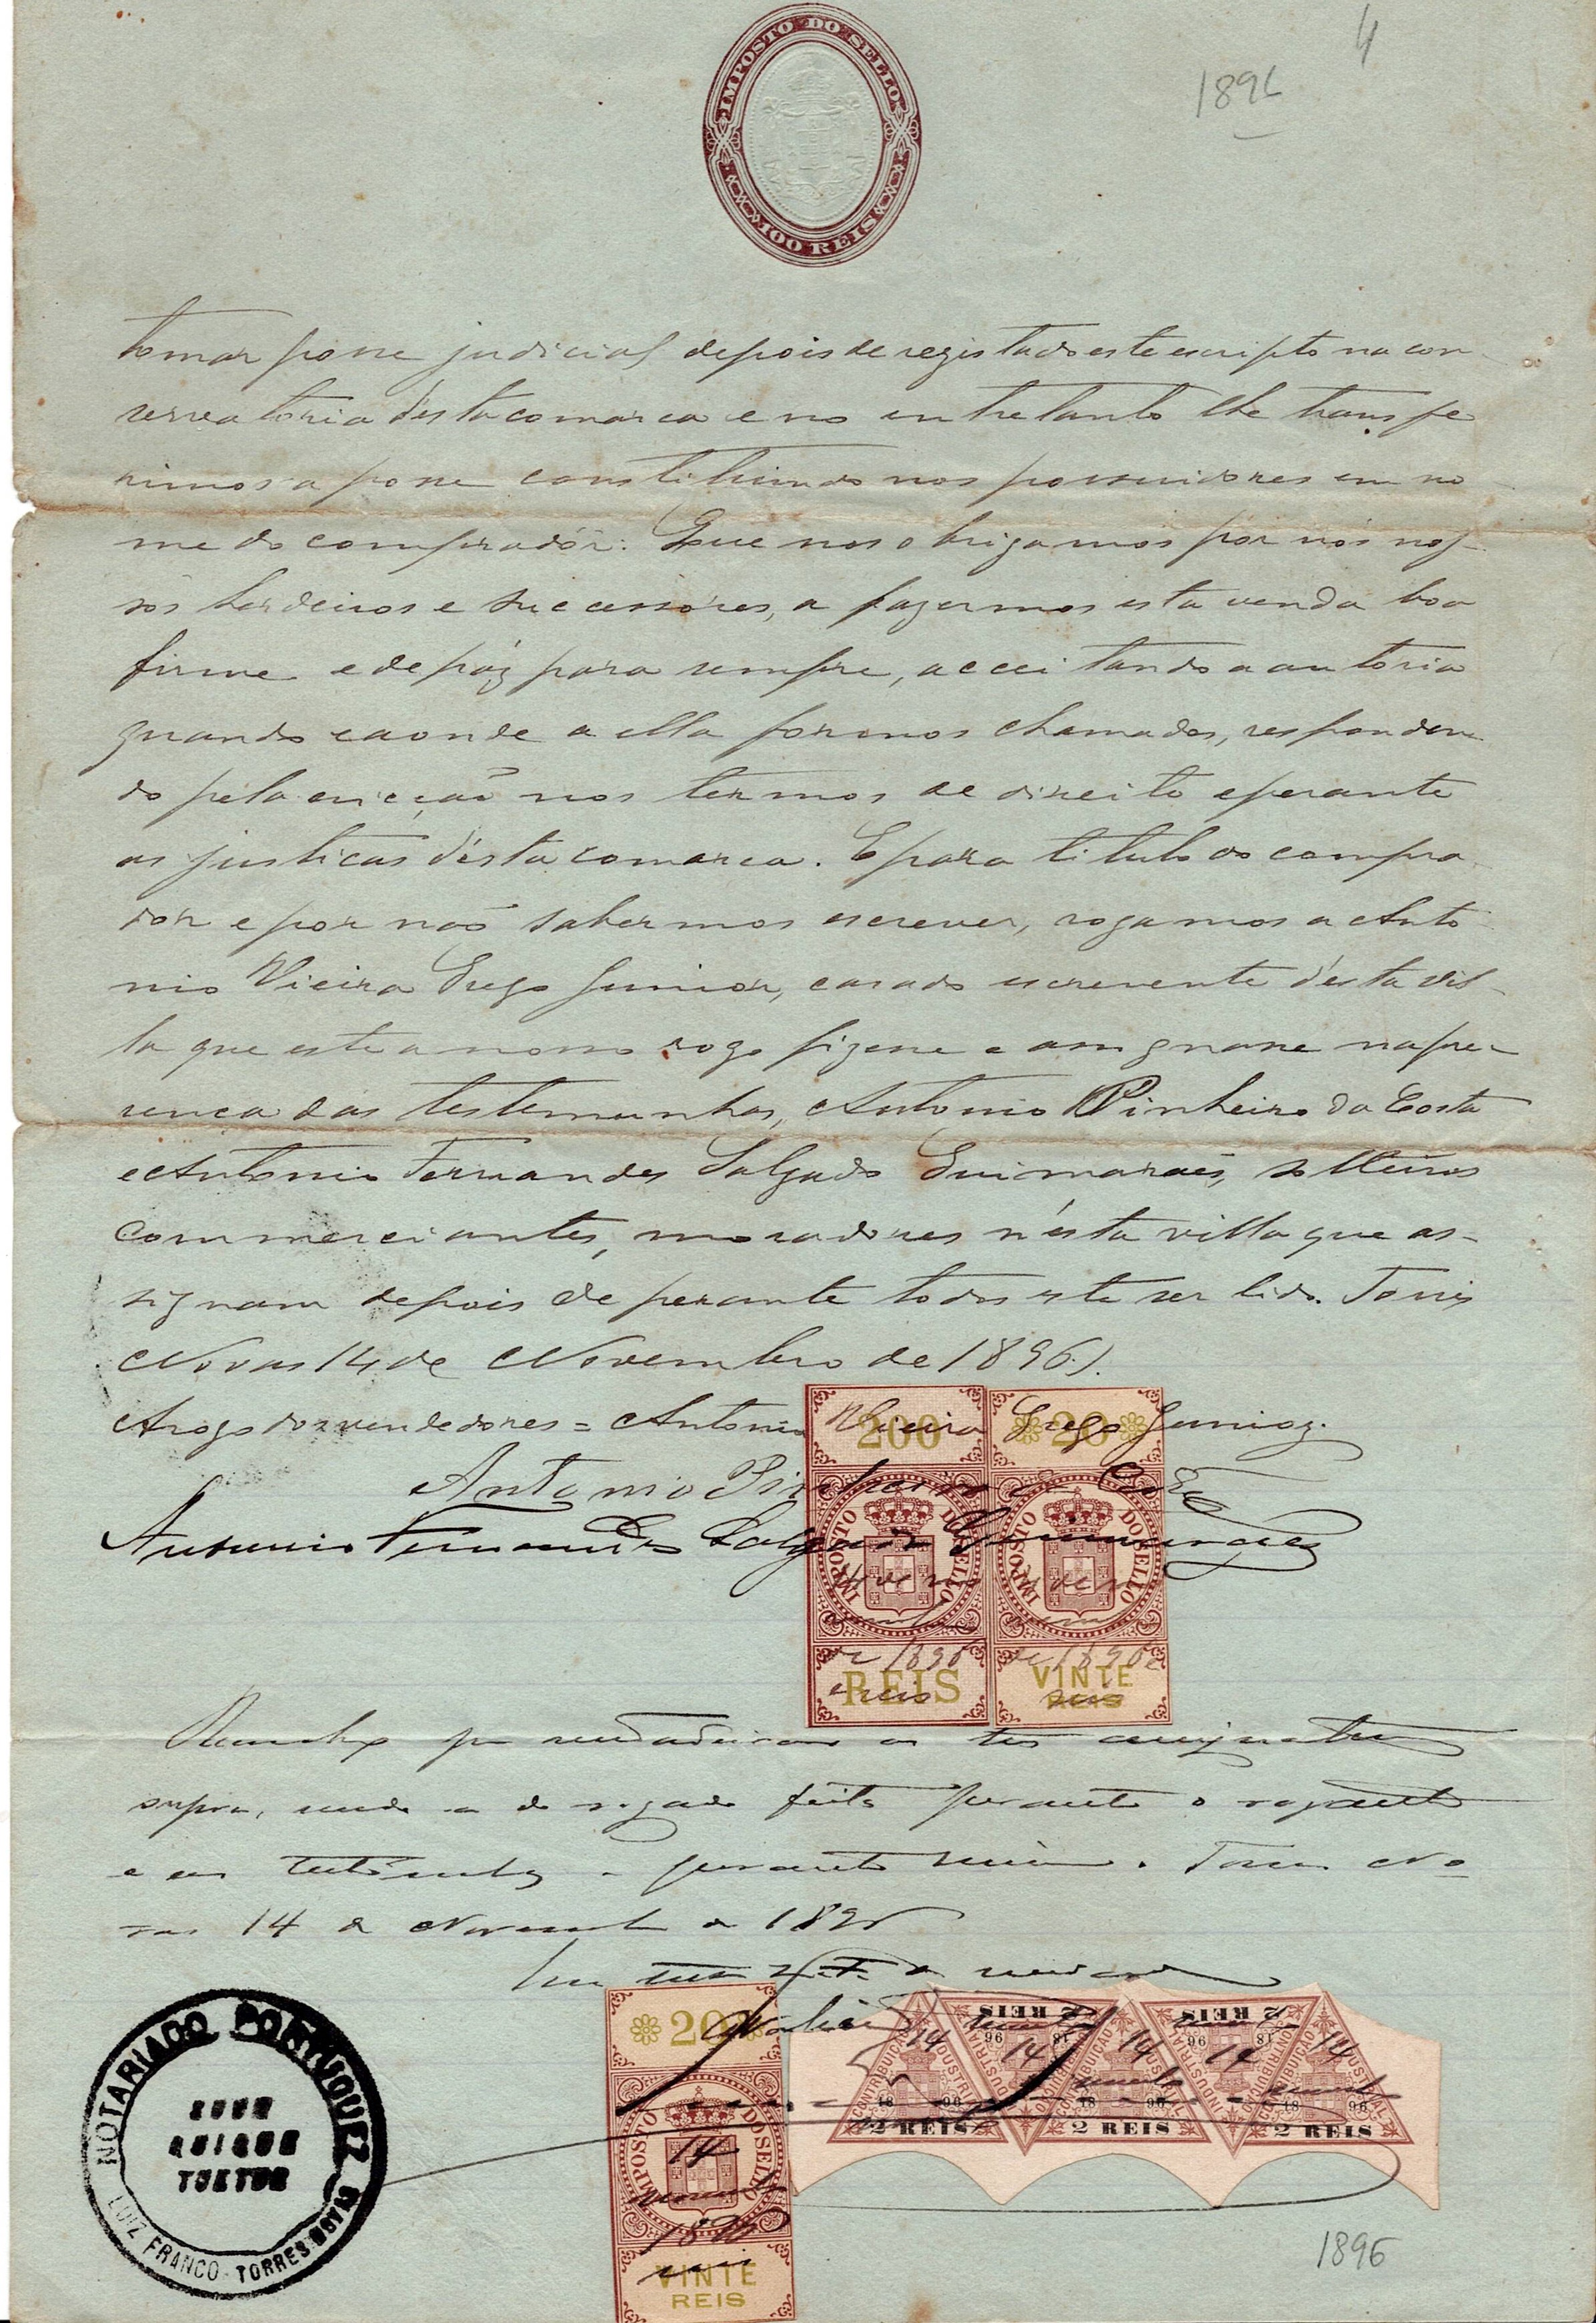 4
1896
IMPOSTO DO SELLO
100 REIS
tomar posse judicial depois de registado este escripto na con-
servatoria d'esta comarca e no entretanto lhe transfe-
rimos a posse constituindo nos possuidores em no-
me do comprador. Que nos obrigamos por nós nos-
sos herdeiros e successores, a fazermos esta venda boa
firme e de páz para sempre, acceitando a autoria
quando e aonde a ella formos chamados, responden-
do pela evicção nos termos de direito e perante
as justiças d'esta comarca. E para titulo do compra-
dor e por não sabermos escrever, rogamos a Anto-
nio Vieira Grego Junior, casado escrevente d'esta vil-
la que este a nosso rogo fizesse e assignasse na pre-
sença das testemunhas, Antonio Pinheiro da Costa
e Antonio Fernandes Salgado Guimarães, solteiros
commerciantes, moradores n'esta villa que as-
signam depois de perante todos este ser lido. Torres
Novas 14 de Novembro de 1896.
A rogo dos vendedores = Antonio Vieira Grego Junior.
Antonio Pinheiro da Costa
Antonio Fernandes Salgado Guimarães
200 20
IMPOSTO DO SELLO IMPOSTO DO SELLO
14 de no 14 de no
vembro vembro
de 1896 de 1896
REIS VINTE REIS
Reconheço por verdadeiras as tres assignaturas
supra, sendo a do rogado feita perante o rogante
e as testemunhas e perante mim. Torres No-
vas 14 de Novembro de 1896
Em test de verdade
20
IMPOSTO DO SELLO
14
Novembro
1896
VINTE
REIS
CONTRIBUIÇÃO INDUSTRIAL 18 96 2 REIS
CONTRIBUIÇÃO INDUSTRIAL 18 96 2 REIS
CONTRIBUIÇÃO INDUSTRIAL 18 96 2 REIS
CONTRIBUIÇÃO INDUSTRIAL 18 96 2 REIS
CONTRIBUIÇÃO INDUSTRIAL 18 96 2 REIS
14 14 14 14 14
NOTARIADO PORTUGUEZ
LUIZ FRANCO - TORRES NOVAS
1896